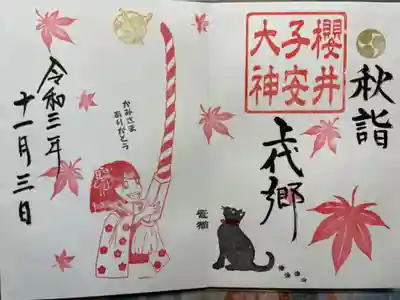 秋詣
櫻井
子安
大神
上代郷
かみさま
ありがとう
令和三年
十一月三日